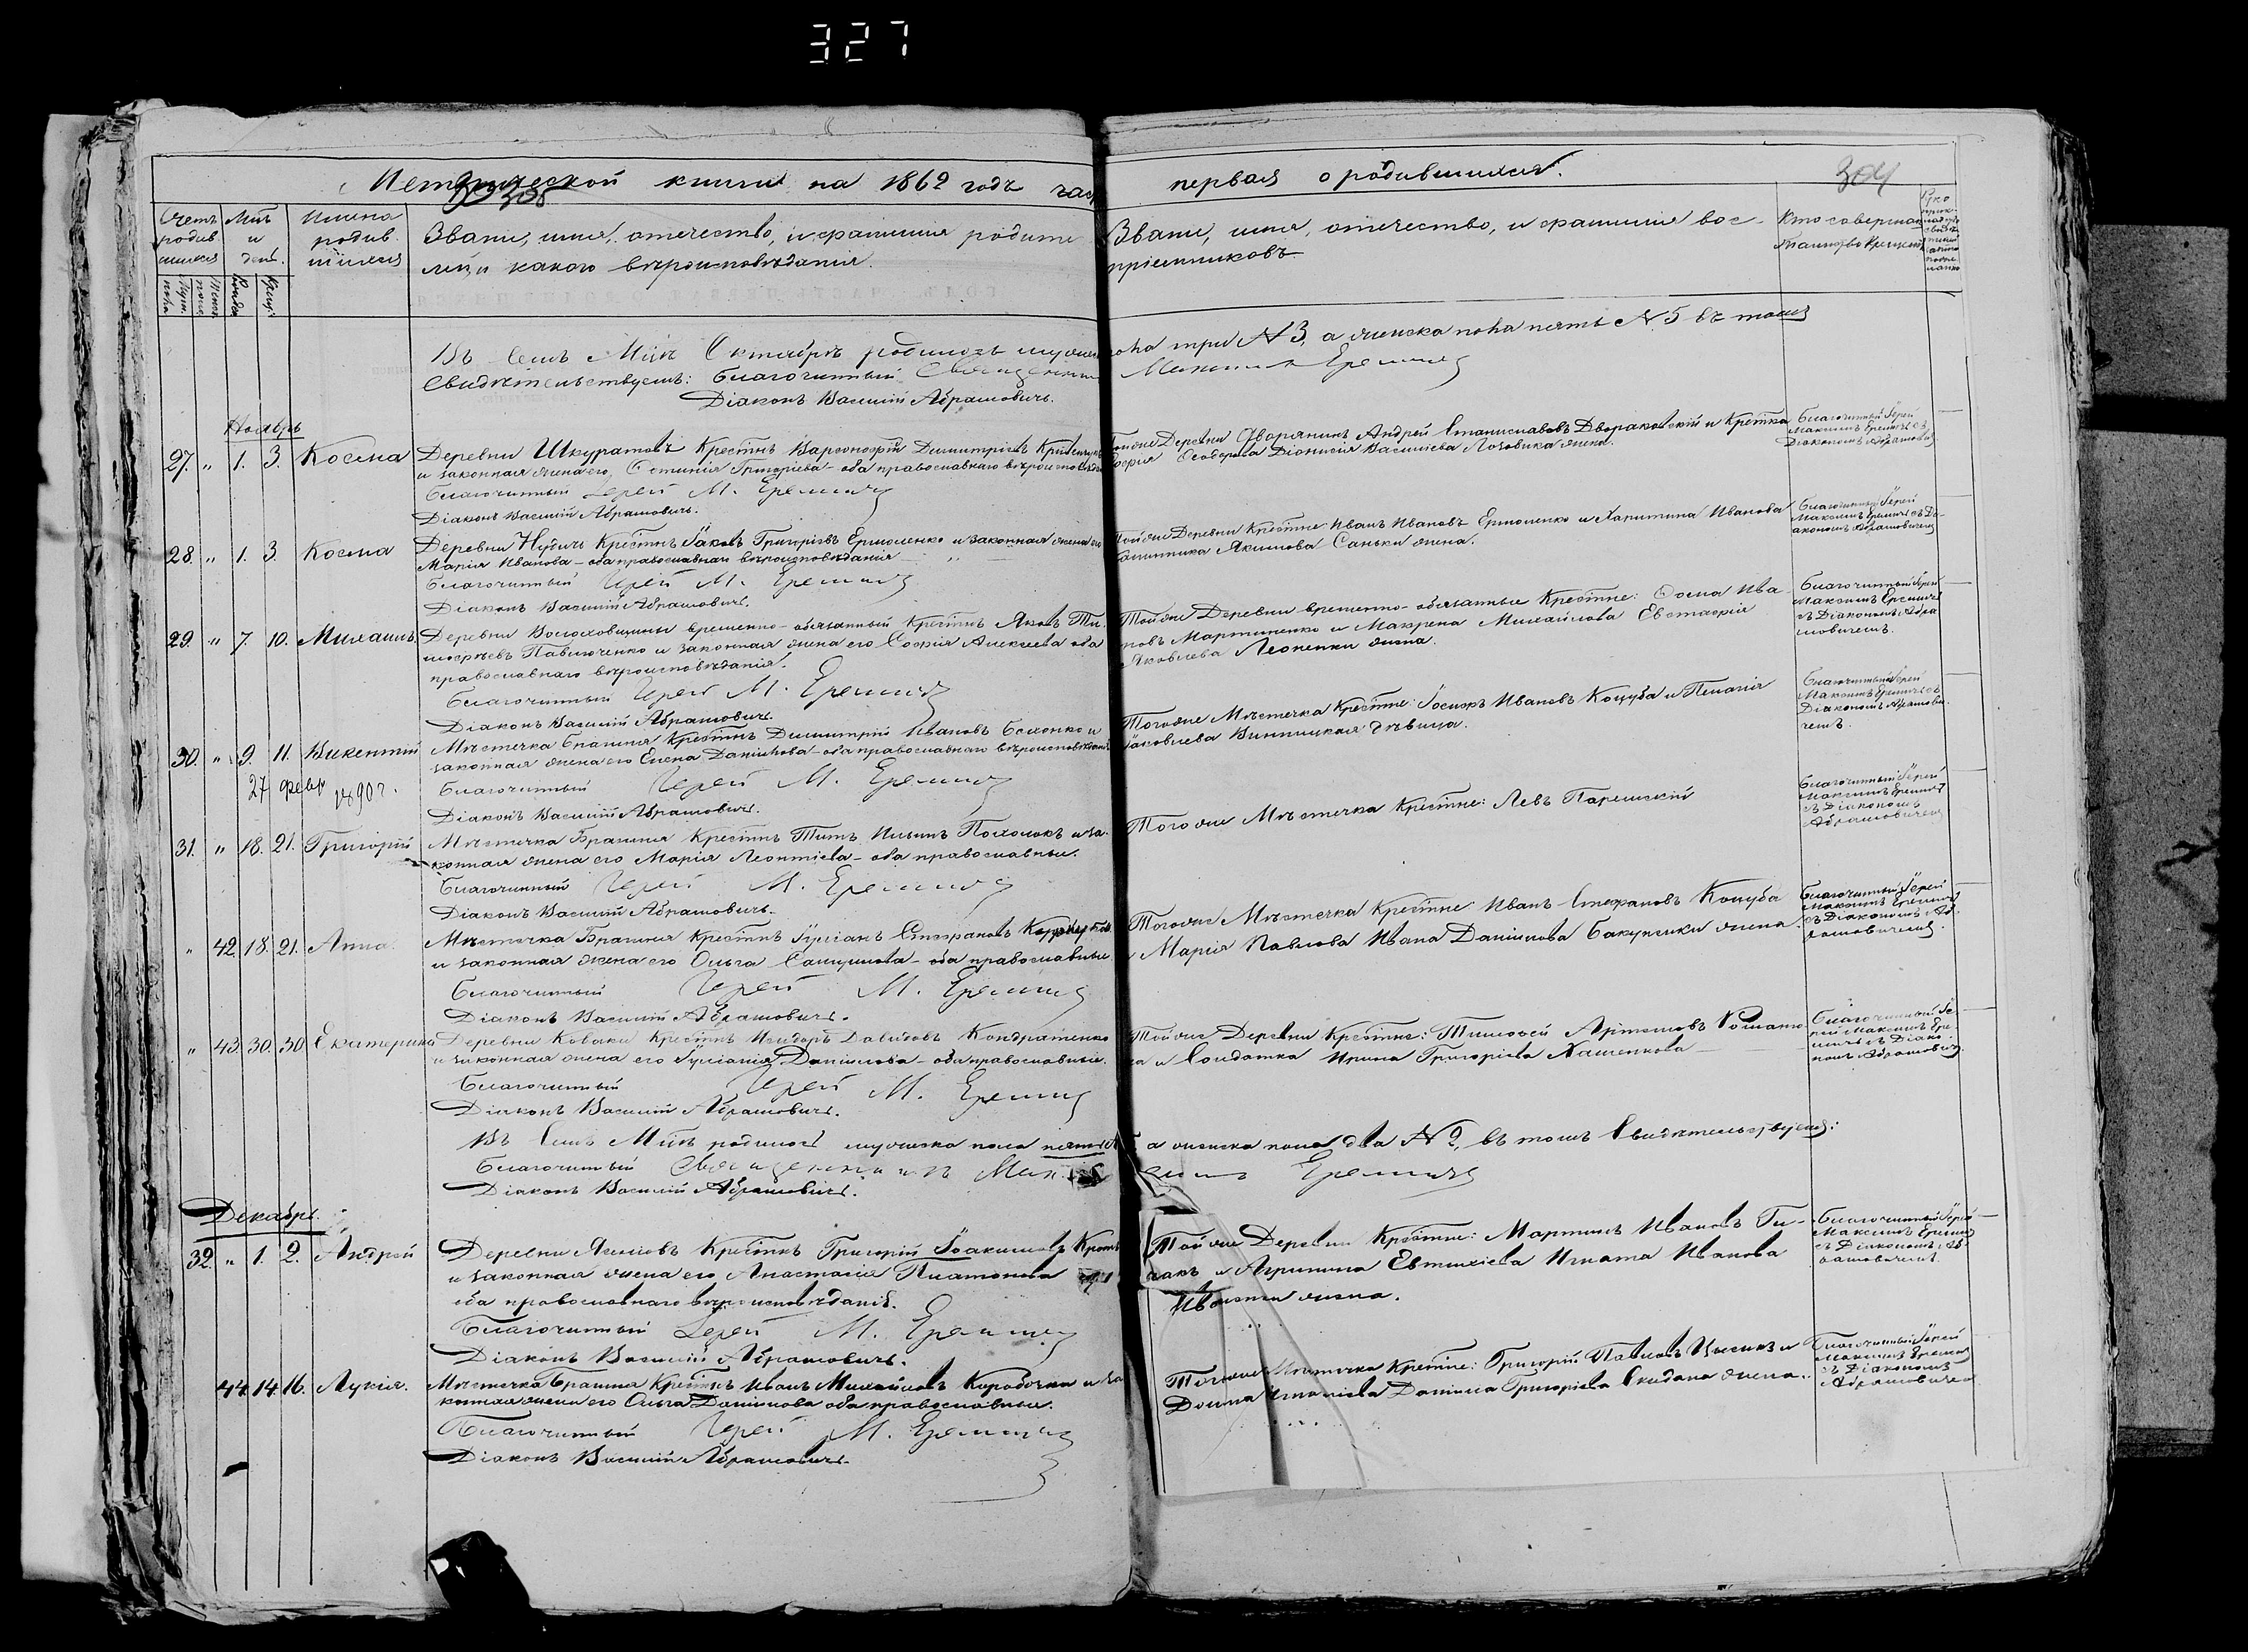 327
Метрической книги на 1862 годъ час
первая о родившихся.
304
Счетъ родив шихся
Мць и день.
Имена родив шихся
Званіе, имя, отечество, и фамилия родите
лей и какого вѣроисповѣданія.
Званіе, имя, отечество, и фамилия вос-
пріемниковъ
Кто совершал
Таинство Крещенія
Въ семъ Мцѣ Октябрѣ родилось мужеска
пола три №3, а женска пола пять №5 въ томъ
Свидѣтельствуемъ: Благочинный Священникъ
Максимъ Еремичъ
Діаконъ Василій Абрамовичъ.
Ноябрь
27. " 1. 3. Косма
Деревни Шкуратовъ Крестнъ Варфоломей Димитріевъ
и законная жена его Іустинія Григоріева - оба православнаго вѣроисповѣд
Благочинный Іерей М. Еремичъ
Діаконъ Василій Абрамовичъ.
Той же Деревни Дворянинъ Андрей Станиславовъ Двораковскій и Крестка
Софія Ѳеодорова Діонисія Васильева Лозовика жена.
Благочинный Іерей
Максимъ Еремичъ съ
Діакономъ Абрамов
28. " 1. 3. Косма
Деревни Нудичь Крестнъ Іаковъ Григорьевъ Ермоленко и законная жена его
Марія Иванова - оба православнаго вѣроисповѣданія
Благочинный Іерей М. Еремичъ
Діаконъ Василій Абрамовичъ.
Той же Деревни Крестне Иванъ Ивановъ Ермоленко и Харитина Иванова
Калинника Якимова Саньки жена.
Благочинный Іерей
Максимъ Еремичъ съ Ді-
акономъ Абрамовичемъ
29. " 7. 10. Михаилъ
Деревни Волоховщины временно-обязанный Крестнъ Яковъ Ти-
мофеевъ Павлюченко и законная жена его Софія Алексеева оба
православнаго вѣроисповѣданія.
Благочинный Іерей М. Еремичъ
Діаконъ Василій Абрамовичъ.
Той же Деревни временно-обязанные Крестне: Ѳома Ива-
новъ Мартиненко и Макрена Михайлова Евстафія
Яковлева Леоненки жена.
Благочинный Іерей
Максимъ Еремичъ
съ Діакономъ Абра
мовичемъ.
30. " 9. 11. Викентій
27 февр 1890 г.
Мѣстечка Брагиня Крестнъ Димитрій Ивановъ и
законная жена его Елена Данилова - оба православнаго вѣроисповѣдан
Благочинный Іерей М. Еремичъ
Діаконъ Василій Абрамовичъ.
Того же Мѣстечка Крестне: Іосифъ Ивановъ Коцуба и Пелагія
Іаковлева Винницкая дѣвица.
Благочинный Іерей
Максимъ Еремичъ съ
Діакономъ Абрамови
чемъ.
31. " 18. 21. Григорій
Мѣстечка Брагиня Крестнъ Титъ Ильинъ и за-
конная жена его Марія Леонтіева - оба православные.
Благочинный Іерей М. Еремичъ
Діаконъ Василій Абрамовичъ.
Того же Мѣстечка Крестне: Левъ
Благочинный Іерей
Максимъ Еремичъ
съ Діакономъ
Абрамовичемъ
" 42. 18. 21. Анна.
Мѣстечка Брагиня Крестнъ Іуліанъ Стефановъ
и законная жена его Ольга Самуилова - оба православные
Благочинный Іерей М. Еремичъ
Діаконъ Василій Абрамовичъ.
Того же Мѣстечка Крестне Иванъ Стефановъ Коцуба
и Марія Павлова Ивана Данилова жена.
Благочинный Іерей
Максимъ Еремичъ
съ Діакономъ Аб-
рамовичемъ.
" 43. 30. 30. Екатерина
Деревни Коваки Крестнъ Исидоръ Давидовъ Кондратенко
и законная жена его Іуліанія Данилова - оба православные.
Благочинный Іерей М. Еремичъ
Діаконъ Василій Абрамовичъ.
Той же Деревни Крестне: Тимофей Артемовъ
и Солдатка Ирина Григоріева
Благочинный Іе
рей Максимъ Ере-
мичъ съ Діако-
номъ Абрамович
Въ Семъ Мцѣ родилось мужеска пола пять
а женска пола два №2, въ томъ Свидѣтельствуемъ:
Благочинный Священникъ Максимъ Еремичъ
Діаконъ Василій Абрамовичъ.
Декабрь.
32. " 1. 2. Андрей
Деревни Крестнъ Григорій Іоакимовъ
и законная жена его Анастасія Платонова
оба православнаго вѣроисповѣданія.
Благочинный Іерей М. Еремичъ
Діаконъ Василій Абрамовичъ.
Той же Деревни Крестне: Мартинъ Ивановъ
и Агрипина Евтихіева Игната Иванова
жена.
Благочинный Іерей
Максимъ Еремичъ
съ Діакономъ Аб-
рамовичемъ.
44. 14. 16. Лукія.
Мѣстечка Брагиня Крестнъ Иванъ Михайловъ Коробочка и за
конная жена его Ольга Данилова оба православные.
Благочинный Іерей М. Еремичъ
Діаконъ Василій Абрамовичъ.
Того же Мѣстечка Крестне: Григорій Павловъ и
Домна Игнатіева Даніила Григоріева Скидана жена.
Благочинный Іерей
Максимъ Еремичъ
съ Діакономъ
Абрамовичемъ